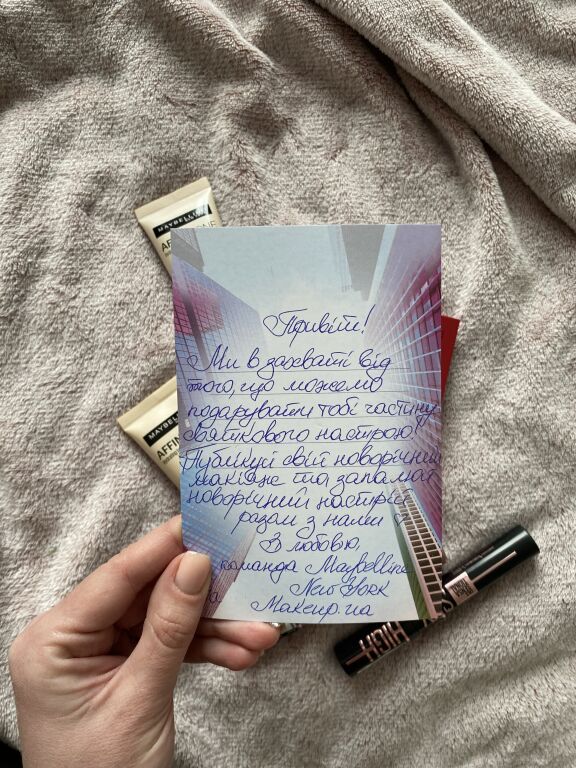 MAYBELLINE
Привіт!
Ми в захваті від
того, що можемо
подарувати тобі частину
святкового настрою!
Публікуй свій новорічний
макіяж та запалюй
новорічний настрій
разом з нами
З любов'ю,
команда Maybelline
New York
Makeup.ua
MAYBELLINE
HIGH